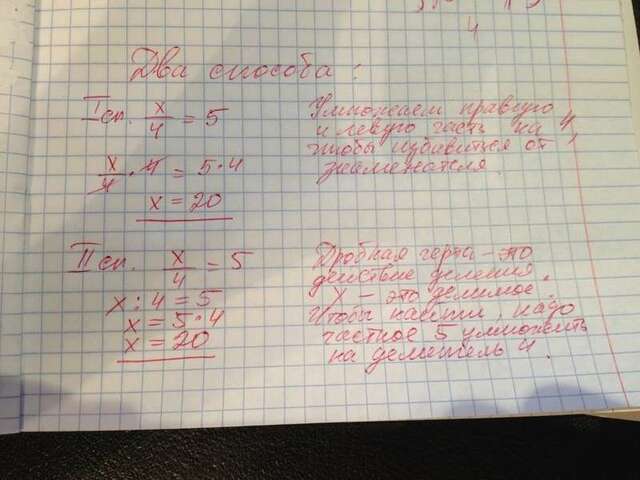 4
Два способа:
I сп. x/4 = 5
Умножаем правую
и левую часть на 4,
чтобы избавиться от
знаменателя.
x/4 · 4 = 5 · 4
x = 20
II сп. x/4 = 5
Дробная черта – это
действие деления.
x : 4 = 5
x – это делимое.
x = 5 · 4
Чтобы найти, надо
x = 20
частное 5 умножить
на делитель 4.